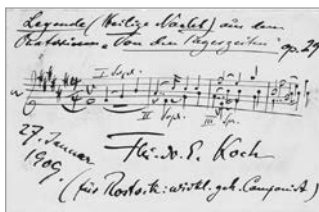 Legende (Heilige Nacht) aus dem
Oratorium „Von den Tageszeiten" op. 29
I Sopr.
II Sopr.
III Sopr.
27. Januar
1909.
Friedr. E. Koch
(für Rostock: wirkl. geh. Componist)